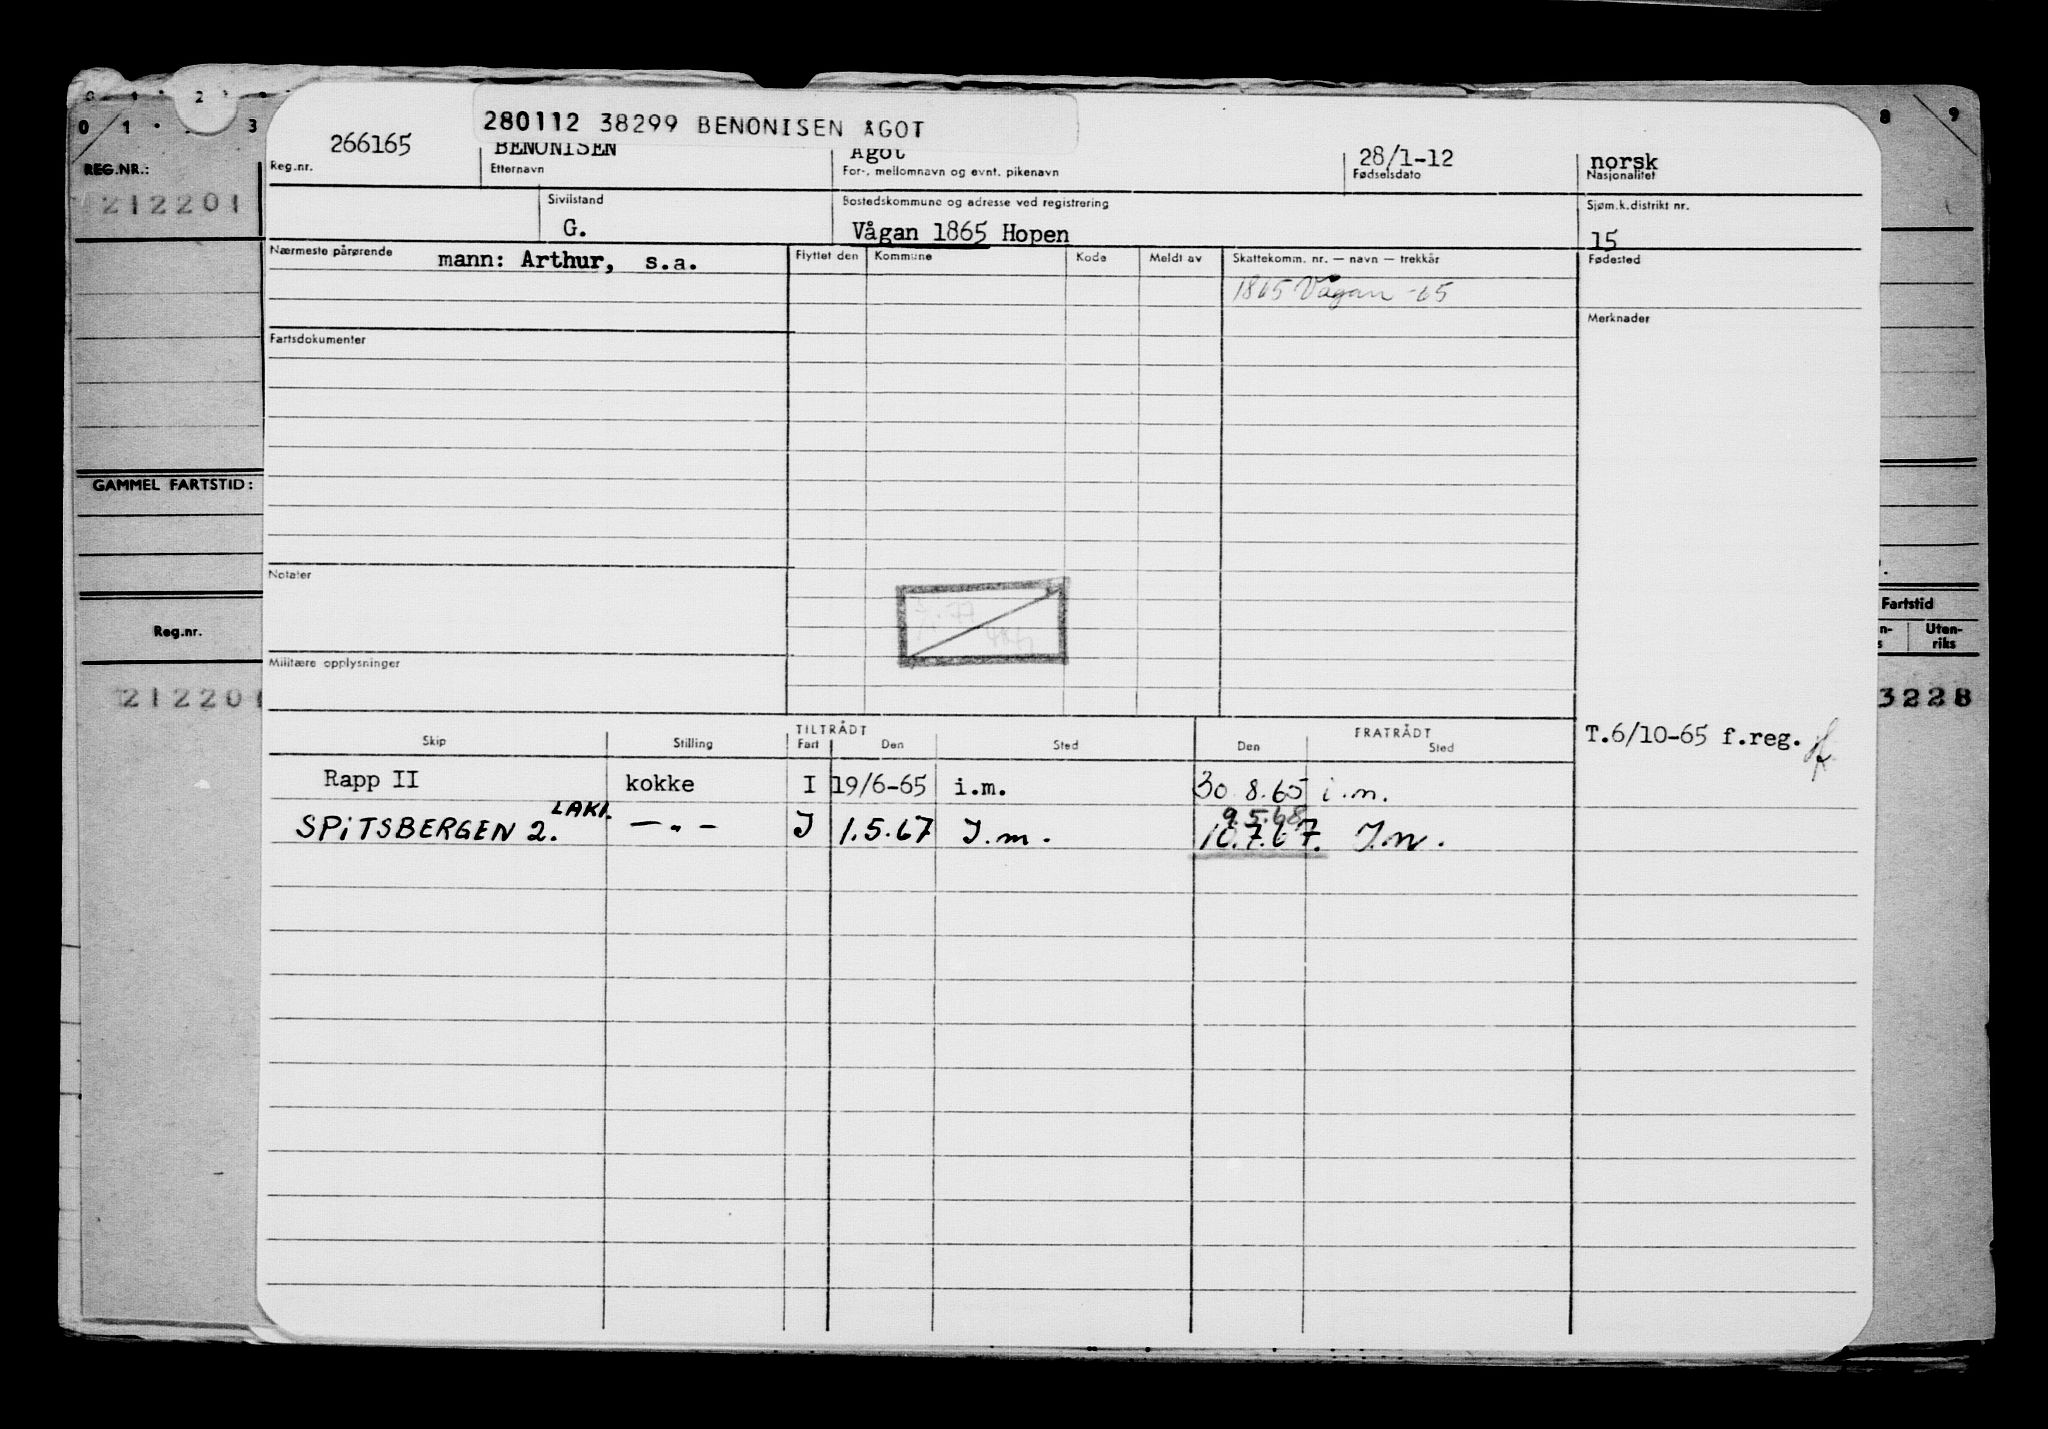 0 1 2
0 1 3
8 9
280112 38299 BENONISEN ÅGOT
266165 BENONISEN Ågot 28/1-12 norsk
Reg.nr. Etternavn For-, mellomnavn og evnt. pikenavn Fødselsdato Nasjonalitet
REG.NR.:
212201
Sivilstand Bostedskommune og adresse ved registrering Sjøm.k.distrikt nr.
G. Vågan 1865 Hopen 15
Nærmeste pårørende mann: Arthur, s.a. Flyttet den Kommune Kode Meldt av Skattekomm. nr. — navn — trekkår Fødested
1865 Vågan -65
Merknader
Fartsdokumenter
GAMMEL FARTSTID:
Notater
Reg.nr.
Fartstid
Uten-
riks
Militære opplysninger
212201
3228
TILTRÅDT FRATRÅDT
Skip Stilling Fart Den Sted Den Sted
T.6/10-65 f.reg.
Rapp II kokke I 19/6-65 i.m. 30.8.65 i.m.
LAKI. 9.5.68
SPiTSBERGEN 2. — " — I 1.5.67 I.m. 10.7.67. I.m.